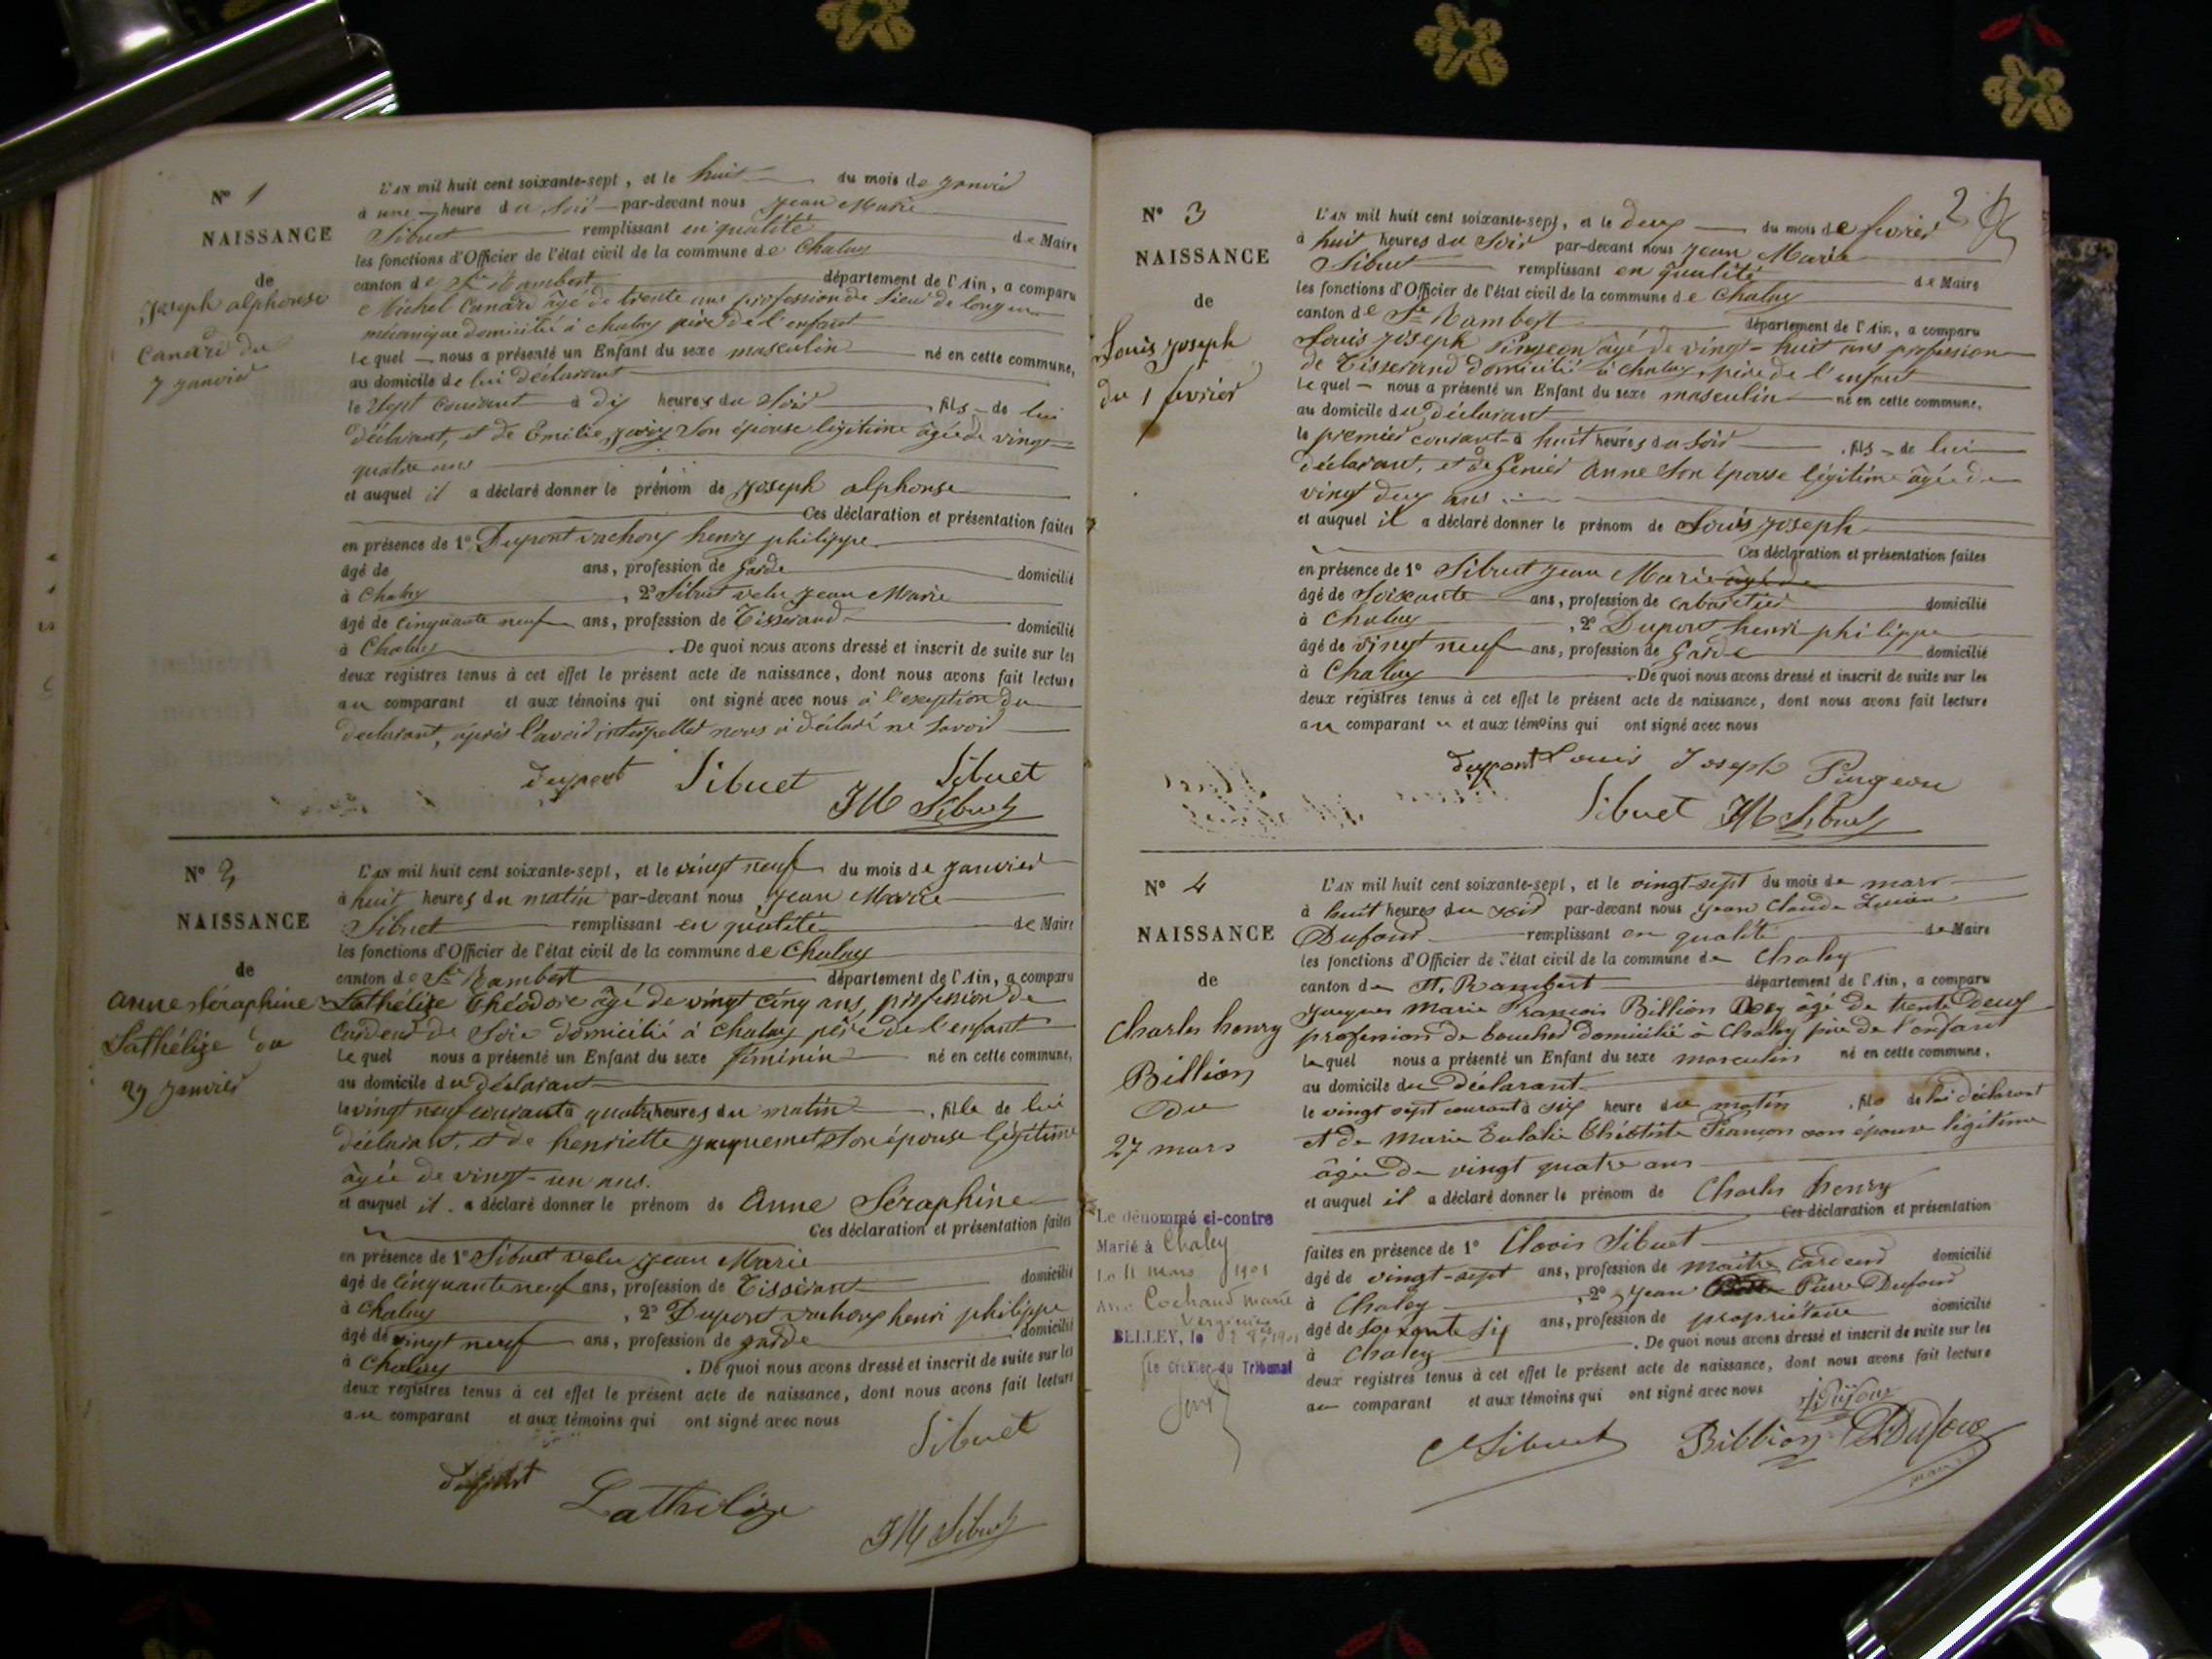 N° 1
NAISSANCE
de
Joseph alphonse
Canard du
7 janvier
L'AN mil huit cent soixante-sept, et le huit du mois de janvier
à une heure du soir par-devant nous Jean Marie
Sibuet remplissant en qualité de Maire
les fonctions d'Officier de l'état civil de la commune de Chaley
canton de St Rambert département de l'Ain, a comparu
Michel Canard âgé de trente ans profession de
mécanique domicilié à chaley père de l'enfant
lequel nous a présenté un Enfant du sexe masculin né en cette commune,
au domicile de lui déclarant
le sept courant à dix heures du soir, fils de lui
déclarant, et de Emilie son épouse légitime âgée de vingt
quatre ans
et auquel il a déclaré donner le prénom de Joseph alphonse
Ces déclaration et présentation faites
en présence de 1° Dupont vachoux henry philippe
âgé de ans, profession de Garde domicilié
à Chaley, 2° Sibuet velu Jean Marie
âgé de cinquante neuf ans, profession de Tisserand domicilié
à Chaley. De quoi nous avons dressé et inscrit de suite sur les
deux registres tenus à cet effet le présent acte de naissance, dont nous avons fait lecture
au comparant et aux témoins qui ont signé avec nous à l'exeption du
déclarant, après l'avoir interpellet nous a déclaré ne savoir
dupont Sibuet Sibuet
JM Sibuet
N° 2
NAISSANCE
de
Anne Séraphine
Lathélize du
29 janvier
L'AN mil huit cent soixante-sept, et le vingt neuf du mois de janvier
à huit heures du matin par-devant nous Jean Marie
Sibuet remplissant en qualité de Maire
les fonctions d'Officier de l'état civil de la commune de Chaley
canton de St Rambert département de l'Ain, a comparu
Lathelize Théodore âgé de vingt cinq ans, profession de
Cardeur de Soie domicilié à Chaley père de l'enfant
lequel nous a présenté un Enfant du sexe féminin né en cette commune,
au domicile du déclarant
le vingt neuf courant à quatre heures du matin, fille de lui
déclarant, et de henriette Jacquemet son épouse légitime
âgée de vingt-un ans.
et auquel il a déclaré donner le prénom de Anne Séraphine
Ces déclaration et présentation faites
en présence de 1° Sibuet velu Jean Marie
âgé de cinquante neuf ans, profession de Tisserant domicilié
à Chaley, 2° Dupont vachoux henri philippe
âgé de vingt neuf ans, profession de garde domicilié
à Chaley. De quoi nous avons dressé et inscrit de suite sur les
deux registres tenus à cet effet le présent acte de naissance, dont nous avons fait lecture
au comparant et aux témoins qui ont signé avec nous
Sibuet
dupont Lathelize
JM Sibuet
2
N° 3
NAISSANCE
de
Louis Joseph
du 1 fevrier
L'AN mil huit cent soixante-sept, et le deux du mois de fevrier
à huit heures du Soir par-devant nous Jean Marie
Sibuet remplissant en qualité de Maire
les fonctions d'Officier de l'état civil de la commune de Chaley
canton de St Rambert département de l'Ain, a comparu
Louis Joseph Pingeon âgé de vingt-huit ans profession
de Tisserand domicilié à Chaley, père de l'enfant
lequel nous a présenté un Enfant du sexe masculin né en cette commune,
au domicile du déclarant
le premier courant à huit heures du soir, fils de lui
déclarant, et de Genier Anne Son épouse légitime âgée de
vingt deux ans
et auquel il a déclaré donner le prénom de Louis Joseph
Ces déclaration et présentation faites
en présence de 1° Sibuet Jean Marie âgé de
âgé de Soixante ans, profession de cabaretier domicilié
à Chaley, 2° Dupont henri philippe
âgé de vingt neuf ans, profession de Garde domicilié
à Chaley. De quoi nous avons dressé et inscrit de suite sur les
deux registres tenus à cet effet le présent acte de naissance, dont nous avons fait lecture
au comparant et aux témoins qui ont signé avec nous
dupont Louis Joseph Pingeon
Sibuet JM Sibuet
N° 4
NAISSANCE
de
Charles henry
Billion
du
27 mars
Le dénommé ci-contre
Marié à Chaley
Le 11 mars 1901
Avec Cochaud Marie
Virginie
BELLEY, le
Le Greffier du Tribunal
L'AN mil huit cent soixante-sept, et le vingt-sept du mois de mars
à huit heures du soir par-devant nous Jean Claude
Dufour remplissant en qualité de Maire
les fonctions d'Officier de l'état civil de la commune de Chaley
canton de St. Rambert département de l'Ain, a comparu
Jacques Marie François Billion âgé de trente deux
profession de boucher domicilié à Chaley père de l'enfant
lequel nous a présenté un Enfant du sexe masculin né en cette commune,
au domicile du déclarant
le vingt sept courant à six heure du matin, fils de lui déclarant
et de Marie Eulalie Françon son épouse légitime
âgée de vingt quatre ans
et auquel il a déclaré donner le prénom de Charles henry
Ces déclaration et présentation
faites en présence de 1° Clovis Sibuet
âgé de vingt-sept ans, profession de maître Cardeur domicilié
à Chaley, 2° Jean Pierre Dufour
âgé de Soixante six ans, profession de propriétaire domicilié
à Chaley. De quoi nous avons dressé et inscrit de suite sur les
deux registres tenus à cet effet le présent acte de naissance, dont nous avons fait lecture
au comparant et aux témoins qui ont signé avec nous
Dufour
C Sibuet Billion Dufour